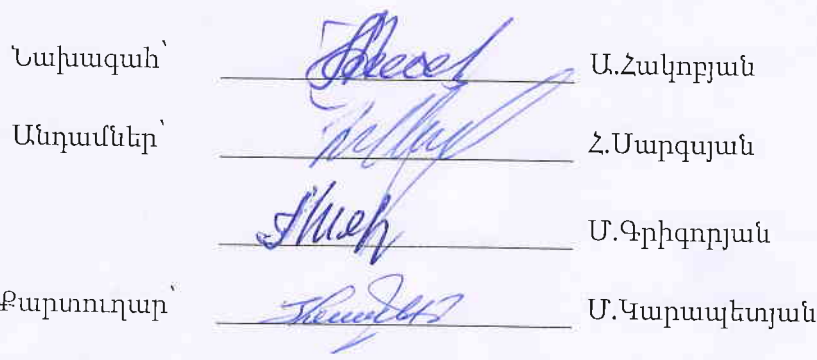 Նախագահ՝ Ա.Հակոբյան
Անդամներ՝ Հ.Սարգսյան
Մ.Գրիգորյան
Քարտուղար՝ Մ.Կարապետյան